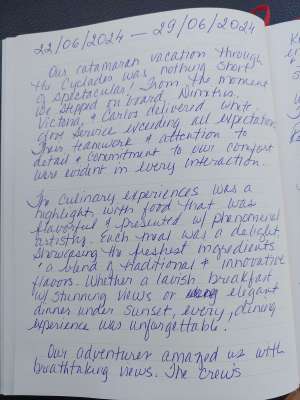 22/06/2024 — 29/06/2024
Our catamaran vacation through
the Cyclades was nothing short
of spectacular! From the moment
we stepped on board, Dimitris,
Victoria, & Carlos delivered white-
glove service exceeding all expectations
Their teamwork & attention to
detail & commitment to our comfort
were evident in every interaction.
The culinary experiences was a
highlight, with food that was
flavorful & presented w/ phenomenal
artistry. Each meal was a delight
showcasing the freshest ingredients
& a blend of traditional & innovative
flavors. Whether a lavish breakfast
w/ stunning views or elegant
dinner under sunset, every dining
experience was unforgettable.
Our adventures amazed us with
breathtaking views. The crew's